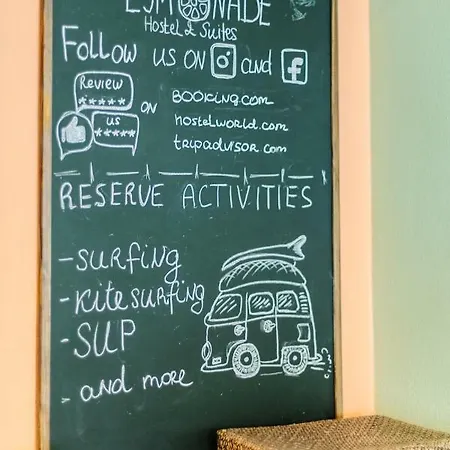 Hostel & Suites
Follow us on and
Review
*****
us
*****
ON
BOOKING.com
hostelworld.com
tripadvisor.com
RESERVE ACTIVITIES
- surfing
- kitesurfing
- SUP
> and more